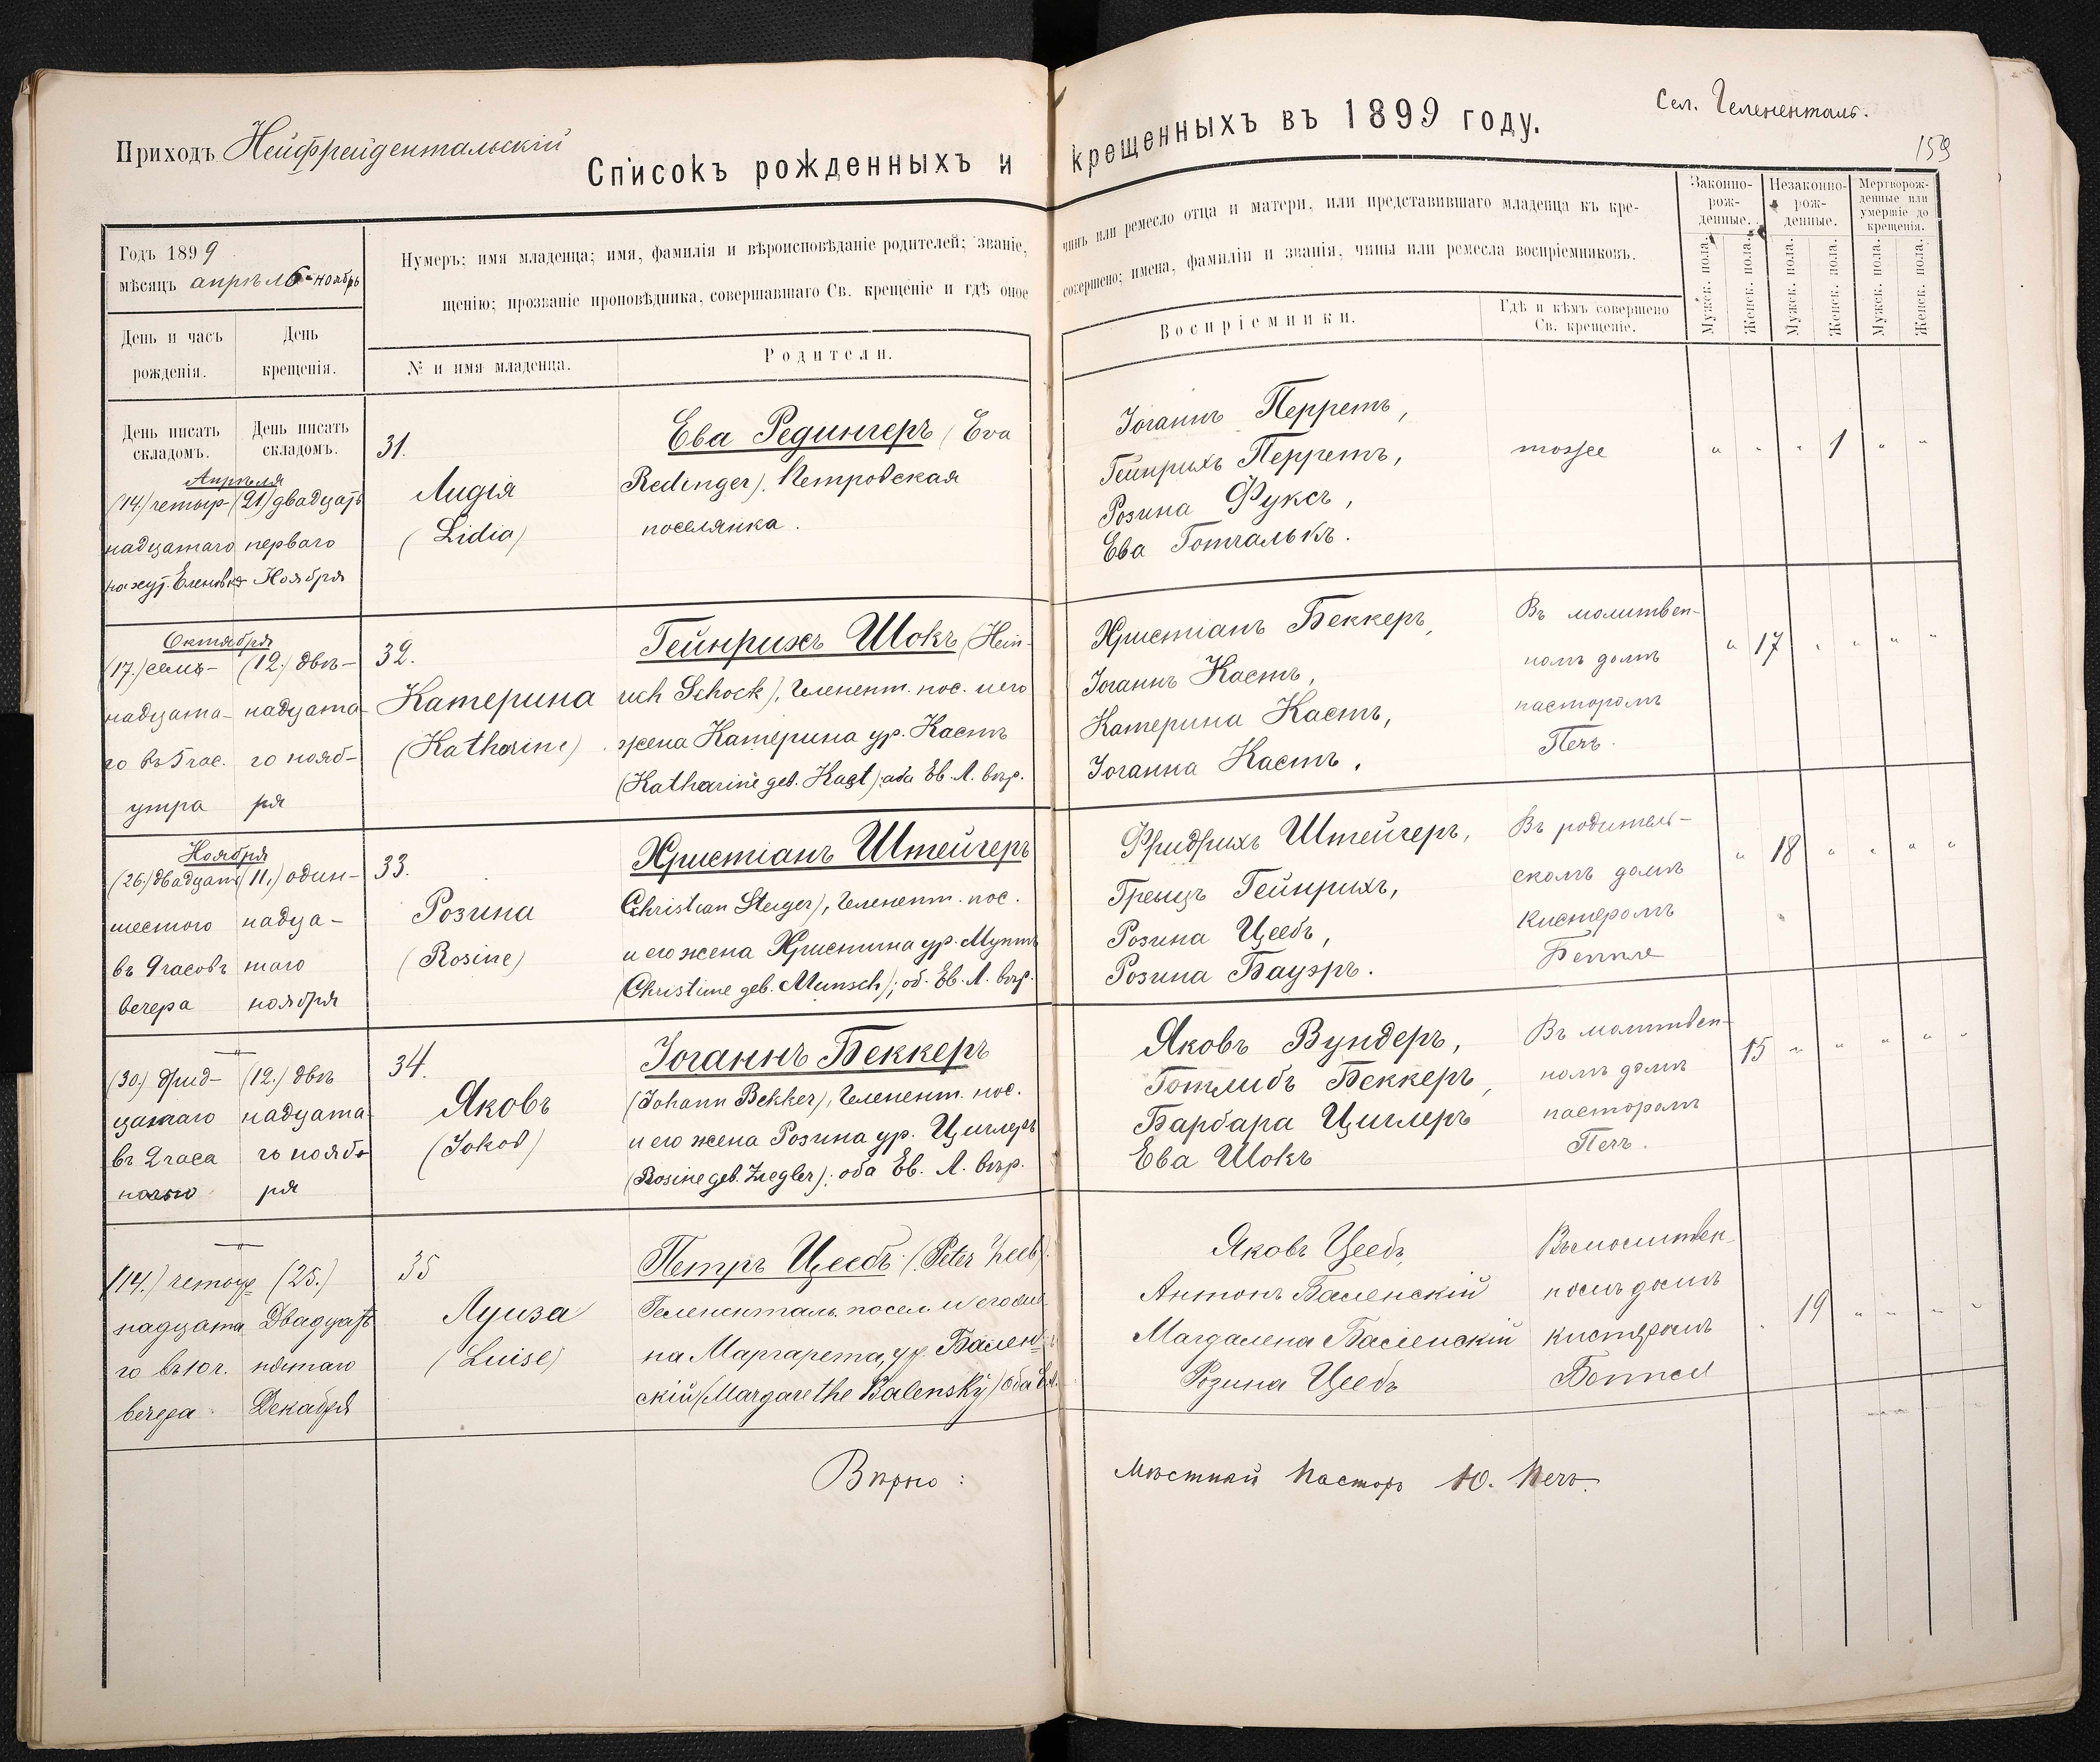 Приходъ Нейфрейдентальскій
Списокъ рожденныхъ и крещенныхъ въ 1899 году.
Сел. Гелененталь.
159
Годъ 1899
мѣсяцъ апрѣль-ноябрь
День и часъ рожденія.
День крещенія.
Нумеръ; имя младенца; имя, фамилія и вѣроисповѣданіе родителей; званіе, чинъ или ремесло отца и матери, или представившаго младенца къ кре-
щенію; прозваніе проповѣдника, совершавшаго Св. крещеніе и гдѣ оное совершено; имена, фамиліи и званія, чины или ремесла воспріемниковъ.
№ и имя младенца.
Родители.
Воспріемники.
Гдѣ и кѣмъ совершено
Св. крещеніе.
Законно-
рож-
денные.
Незаконно-
рож-
денные.
Мертворож-
денные или
умершіе до
крещенія.
Мужск. пола.
Женск. пола.
Мужск. пола.
Женск. пола.
Мужск. пола.
Женск. пола.
День писать
складомъ.
День писать
складомъ.
Апрѣля
(14.) четыр-
надцатаго
на хут. Еленовка
(21) двадцать
перваго
Ноября
31.
Лидія
(Lidia)
Ева Редингеръ (Eva
Redinger), Петровская
поселянка.
Іоганнъ Перретъ,
Гейнрихъ Перретъ,
Розина Фуксъ,
Ева Готчалькъ.
тоже
" " " 1 " "
Октября
(17.) семь-
надцата-
го въ 5 час.
утра
(12.) двѣ-
надцата-
го нояб-
ря
32.
Катерина
(Katharine)
Гейнрихъ Шокъ (Hein-
rich Schock), Геленент. пос. и его
жена Катерина ур. Кастъ
(Katharine geb. Kast); оба Ев. Л. вѣр.
Христіанъ Беккеръ,
Іоганнъ Кастъ,
Катерина Кастъ,
Іоганна Кастъ.
Въ молитвен-
номъ домѣ
пасторомъ
Печъ.
" 17 " " " "
Ноября
(26.) двадцать
шестого
въ 9 часовъ
вечера
(11.) один-
надца-
таго
ноября
33.
Розина
(Rosine)
Христіанъ Штейгеръ
(Christian Steiger), Геленент. пос.
и его жена Христина ур. Мунтъ
(Christine geb. Munsch); об. Ев. Л. вѣр.
Фридрихъ Штейгеръ,
Гренцъ Гейнрихъ,
Розина Цеебъ,
Розина Бауэръ.
Въ родитель-
скомъ домѣ
кистеромъ
Беппле
" 18 " " " "
"
(30.) Трид-
цатаго
въ 2 часа
ночью
(12.) двѣ
надцата-
го нояб-
ря
34.
Яковъ
(Jokob)
Іоганнъ Беккеръ
(Johann Bekker), Геленент. пос.
и его жена Розина ур. Циглеръ
(Rosine geb. Ziegler); оба Ев. Л. вѣр.
Яковъ Вундеръ,
Готлибъ Беккеръ,
Барбара Циглеръ
Ева Шокъ
Въ молитвен-
номъ домѣ
пасторомъ
Печъ.
15 " " " " "
"
(14.) четыр-
надцата
го въ 10 ч.
вечера
(25.)
Двадцать
пятаго
Декабря
35
Луиза
(Luise)
Петръ Цеебъ (Peter Zeeb).
Гелененталь. посел. и его же-
на Маргарета, ур. Бален-
скій (Margarethe Balensky) оба Е.Л.
Яковъ Цеебъ,
Антонъ Баленскій
Магдалена Баленскій
Розина Цеебъ
Въ молитвен-
номъ домѣ
кистеромъ
Беппле
" 19 " " " "
Вѣрно:
Мѣстный Пасторъ Ю. Печъ.